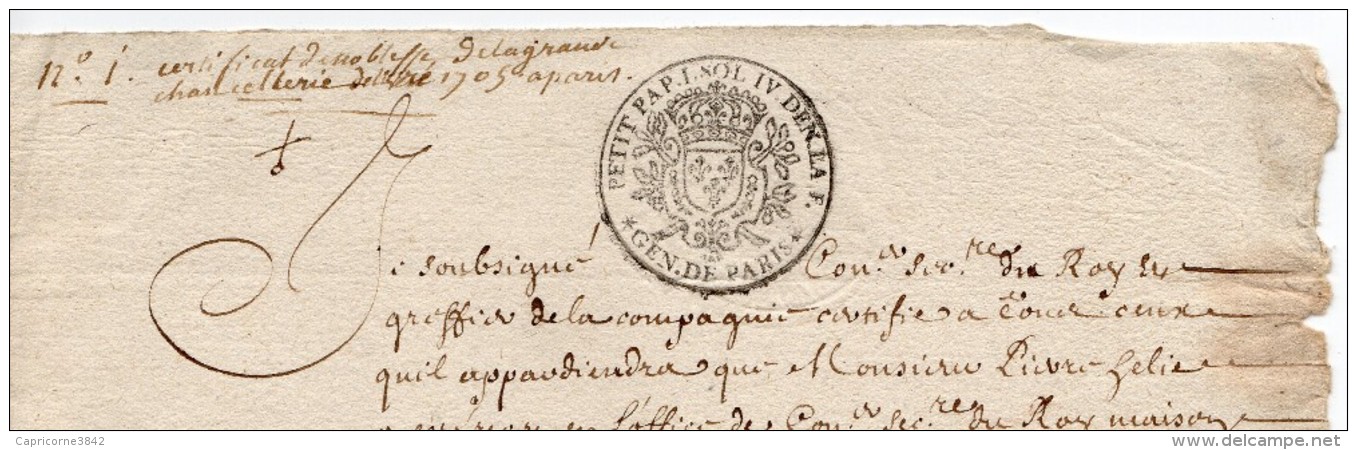 n.º 1. certificat de noblesse de la grande
chancellerie 1705 a paris.
PETIT PAP. I. SOL IV. DEN. LA F.
* GEN. DE PARIS *
Je soubsigné Con.er secr.re du Roy et
greffier de la compagnie certifie a tous ceux
quil appartiendra que Monsieur Pierre helie
en l'office de Con.er secr.re du Roy maison
Capricorne3842
www.delcampe.net